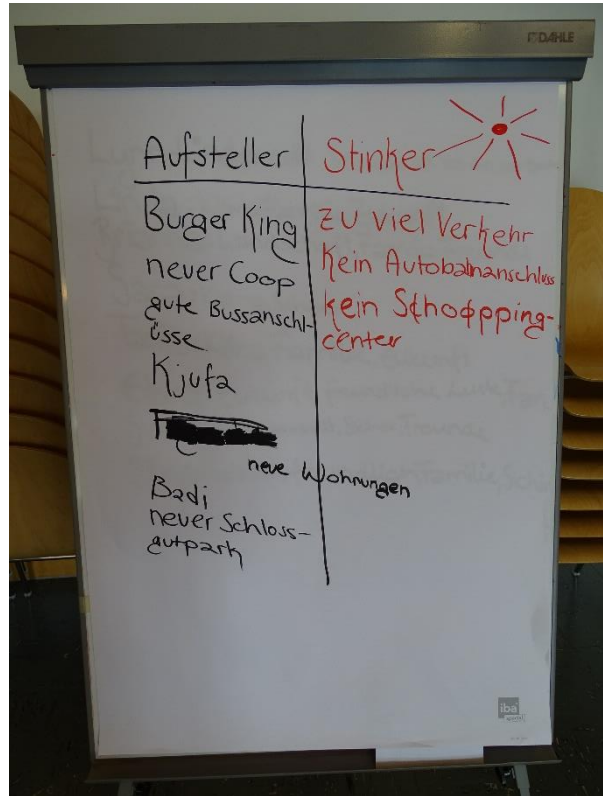 DAHLE
Aufsteller
Burger King
neuer Coop
gute Bussanschl-
üsse
Kjufa
neue Wohnungen
Badi
neuer Schloss-
gutpark
Stinker
zu viel Verkehr
Kein Autobahnanschluss
kein Schoppping-
center
iba